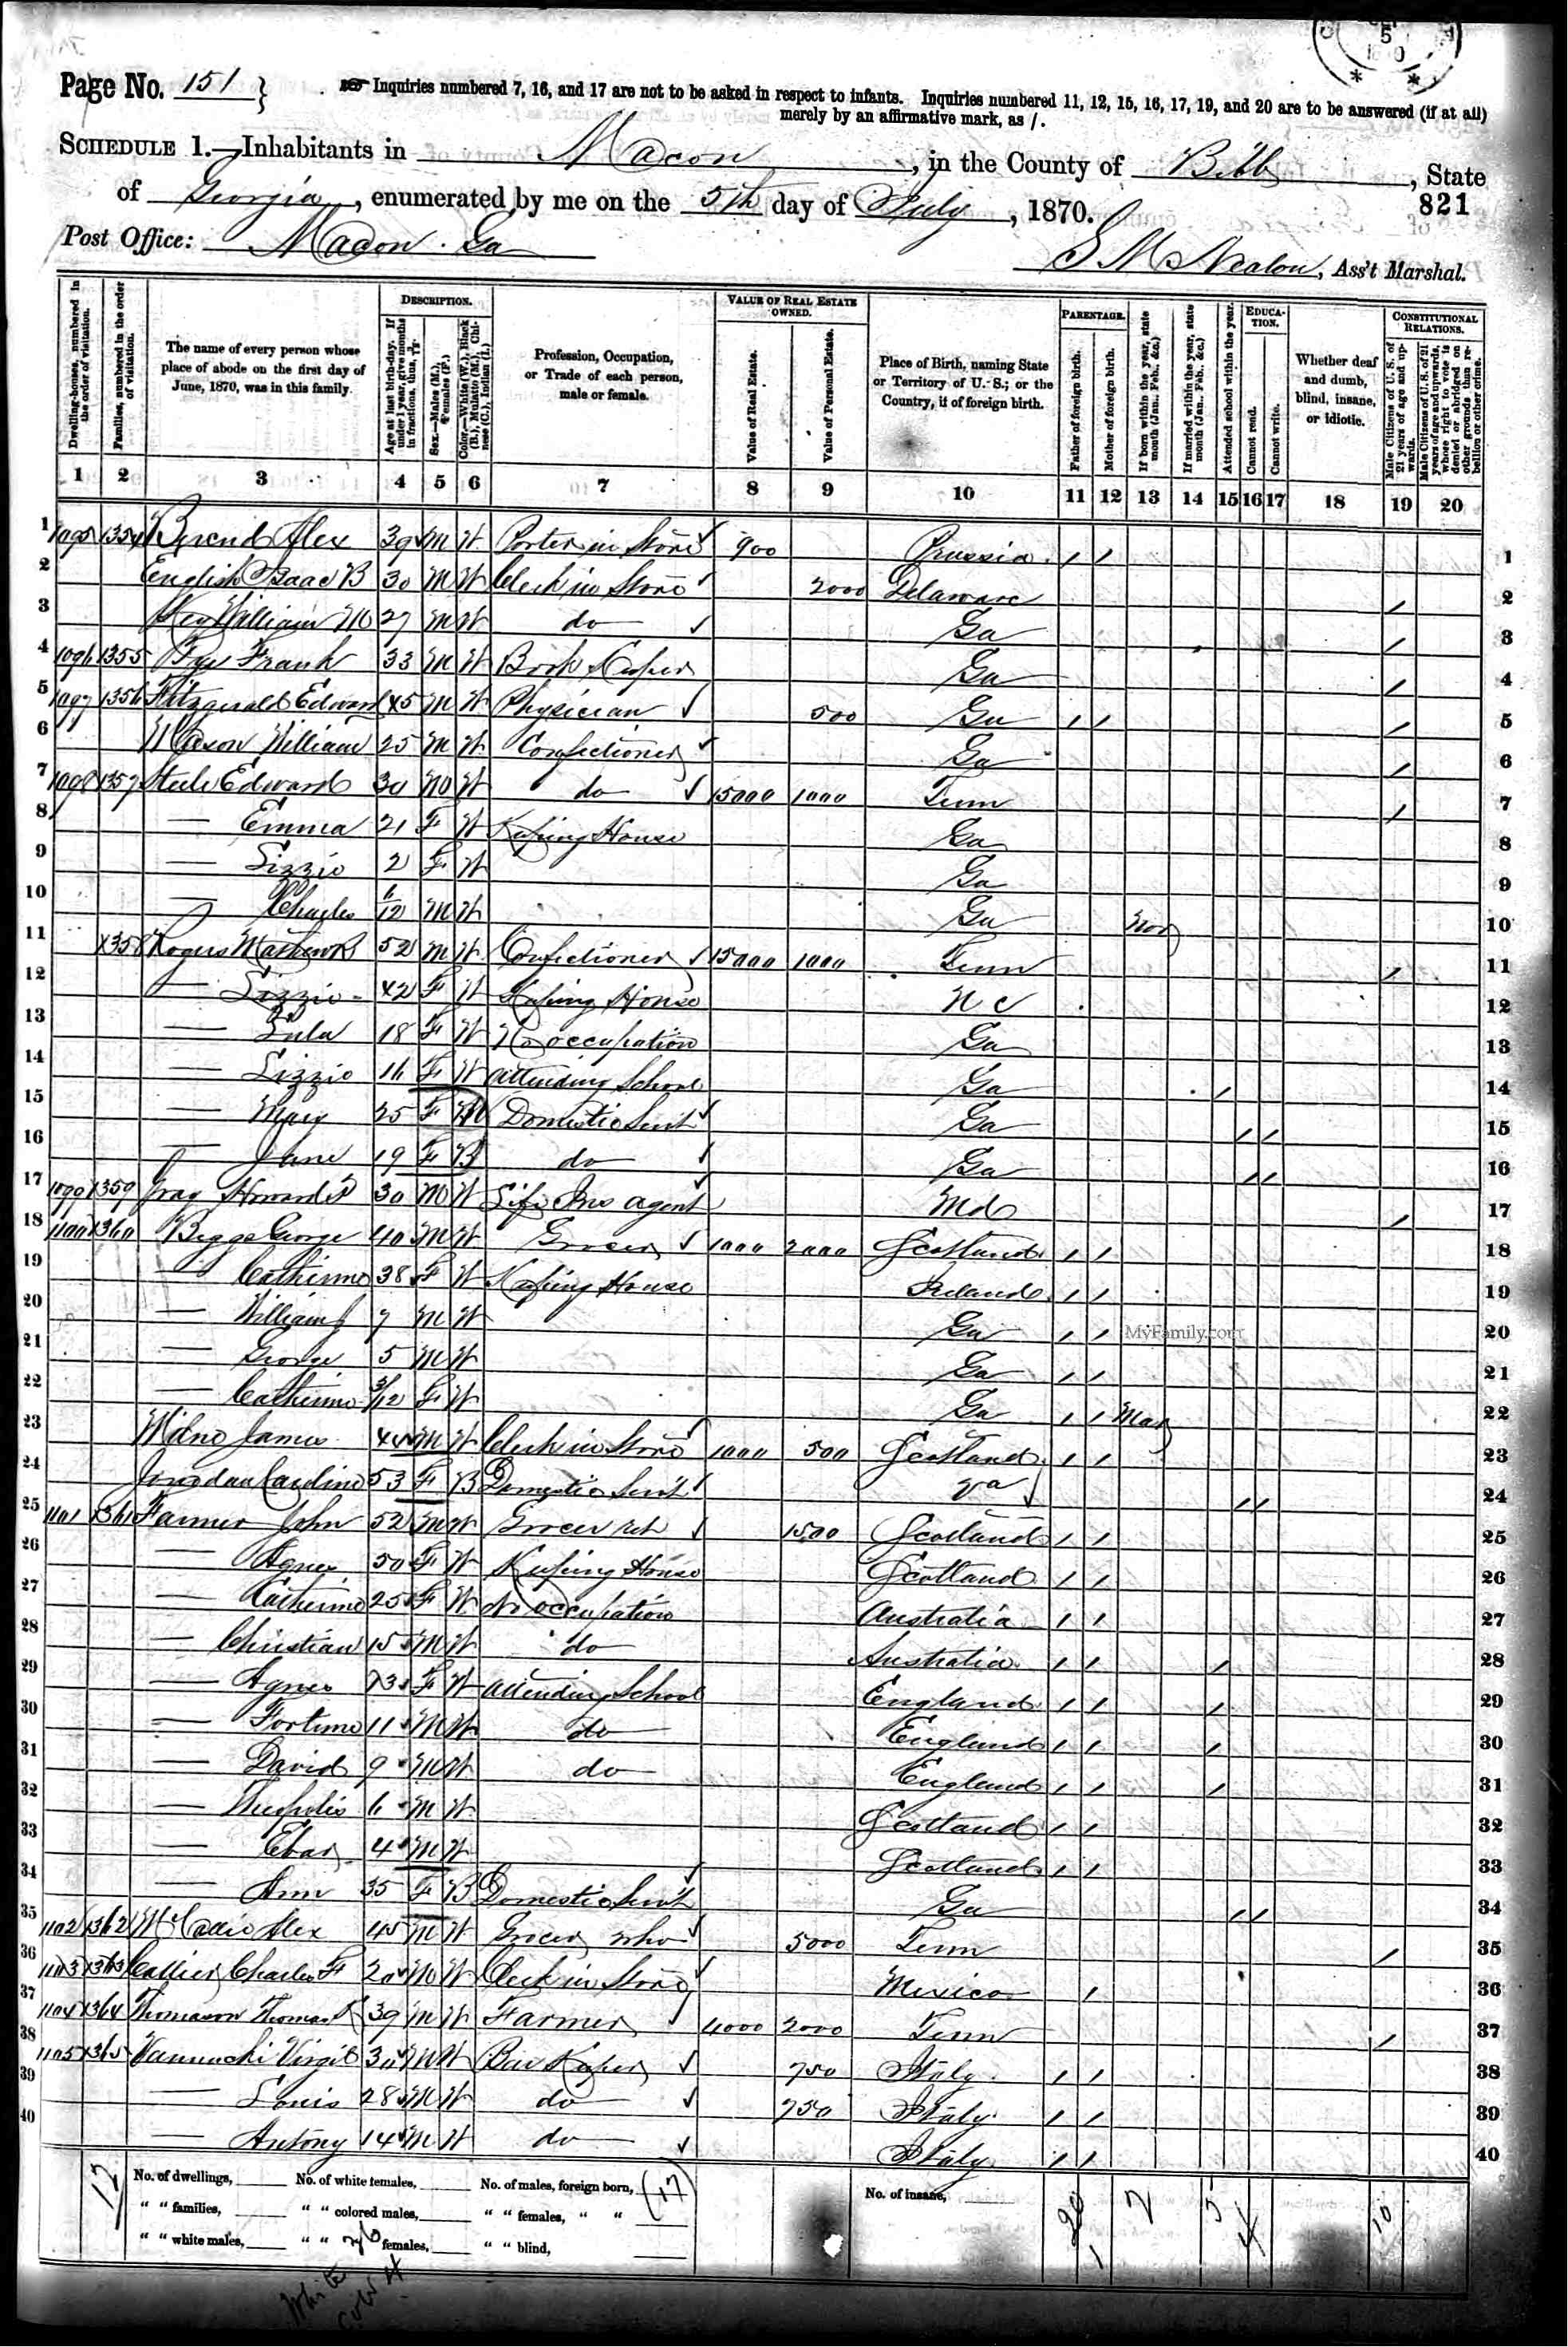 Page No. 151
Inquiries numbered 7, 16, and 17 are not to be asked in respect to infants. Inquiries numbered 11, 12, 15, 16, 17, 19, and 20 are to be answered (if at all)
merely by an affirmative mark, as /.
SCHEDULE 1.—Inhabitants in Macon, in the County of Bibb, State
of Georgia, enumerated by me on the 5th day of July, 1870.
821
Post Office: Macon Ga
Ass't Marshal.
Dwelling-houses, numbered in the order of visitation.
Families, numbered in the order of visitation.
The name of every person whose place of abode on the first day of June, 1870, was in this family.
DESCRIPTION.
Age at last birth-day. If under 1 year, give months in fractions, thus, 3/12
Sex.—Males (M.), Females (F.)
Color.—White (W.), Black (B.), Mulatto (M.), Chinese (C.), Indian (I.)
Profession, Occupation, or Trade of each person, male or female.
VALUE OF REAL ESTATE OWNED.
Value of Real Estate.
Value of Personal Estate.
Place of Birth, naming State or Territory of U. S.; or the Country, if of foreign birth.
PARENTAGE.
Father of foreign birth.
Mother of foreign birth.
If born within the year, state month (Jan., Feb., &c.)
If married within the year, state month (Jan., Feb., &c.)
EDUCATION.
Attended school within the year.
Cannot read.
Cannot write.
Whether deaf and dumb, blind, insane, or idiotic.
CONSTITUTIONAL RELATIONS.
Male Citizens of U. S. of 21 years of age and upwards.
Male Citizens of U. S. of 21 years of age and upwards, whose right to vote is denied or abridged on other grounds than rebellion or other crime.
1 2 3 4 5 6 7 8 9 10 11 12 13 14 15 16 17 18 19 20
1 1095 1354 Berend Alex 39 M W Porter in Store 900 Prussia / / 1
2 English Isaac B 30 M W Clerk in Store 2000 Delaware / 2
3 William M 27 M W do Ga / 3
4 1096 1355 Frank 33 M W Book Keeper Ga / 4
5 1097 1356 Fitzgerald Edward 45 M W Physician 500 Ga / / / 5
6 William 25 M W Confectioner Ga / 6
7 1098 1357 Steele Edward 30 M W do 15000 1000 Tenn / 7
8 — Emma 21 F W Keeping House Ga 8
9 — Lizzie 2 F W Ga 9
10 — Charles /12 M W Ga Nov 10
11 1358 Rogers Mathew 52 M W Confectioner 15000 1000 Tenn / 11
12 — Lizzie 42 F W Keeping House N C 12
13 — Lula 18 F W No occupation Ga 13
14 — Lizzie 16 F W attending School Ga / 14
15 — Mary 25 F M Domestic Servt Ga / / 15
16 — Jane 19 F B do Ga / / 16
17 1099 1359 Gray Howard 30 M W Life Ins agent Md / 17
18 1100 1360 Biggs George 40 M W Grocer 1000 2000 Scotland / / 18
19 — Catherine 38 F W Keeping House Ireland / / 19
20 — William J 7 M W Ga / / 20
MyFamily.com
21 — George 5 M W Ga / / 21
22 — Catherine 3/12 F W Ga / / Mar 22
23 Milne James M W Clerk in Store 1000 500 Scotland / / 23
24 Caroline 53 F B Domestic Servt Va / / 24
25 1101 1361 Farmer John 52 M W Grocer ret 1500 Scotland / / 25
26 — Agnes 50 F W Keeping House Scotland / / 26
27 — Catherine 25 F W No occupation Australia / / 27
28 — Christian 15 M W do Australia / / / 28
29 — Agnes 13 F W attending School England / / / 29
30 — Fortune 11 M W do England / / / 30
31 — David 9 M W do England / / / 31
32 — 6 M W Scotland / / 32
33 — 4 M W Scotland / / 33
34 — Ann 35 F B Domestic Servt Ga / / 34
35 1102 1362 Alex 45 M W Grocer whol 5000 Tenn / 35
36 1103 1363 Collier Charles F 20 M W Clerk in Store Mexico / 36
37 1104 1364 Thomason Thomas 39 M W Farmer 4000 2000 Tenn / 37
38 1105 1365 Vannucki Virgil 30 M W Bar Keeper 750 Italy / / 38
39 — Louis 28 M W do 750 Italy / / 39
40 — Antony 14 M W do Italy / / 40
12 No. of dwellings, No. of white females, No. of males, foreign born, (17) No. of insane, 2 10
" " families, " " colored males, " " females, " "
" " white males, " " females, " " blind,
White